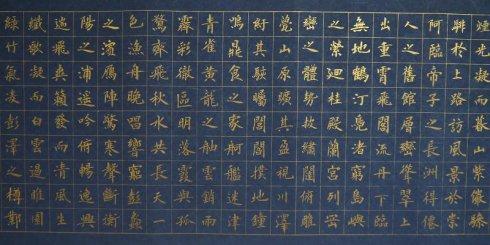 煙光凝而暮山紫儼驂
騑於上路訪風景於崇
阿臨帝子之長洲得僊
人之舊館層巒聳翠上
出重霄飛閣流丹下臨
無地鶴汀鳧渚窮島嶼
之縈迴桂殿蘭宮列岡
巒之體勢披繡闥俯雕
甍山原曠其盈視川澤
紆其駭矚閭閻撲地鐘
鳴鼎食之家舸艦迷津
青雀黃龍之舳雲銷雨
霽彩徹區明落霞與孤
鶩齊飛秋水共長天一
色漁舟晚唱響窮彭蠡
之濱雁陣驚寒聲斷衡
陽之浦遙吟俯暢逸興
遄飛爽籟發而清風生
纖歌凝而白雲遏睢園
綠竹氣凌彭澤之樽鄴